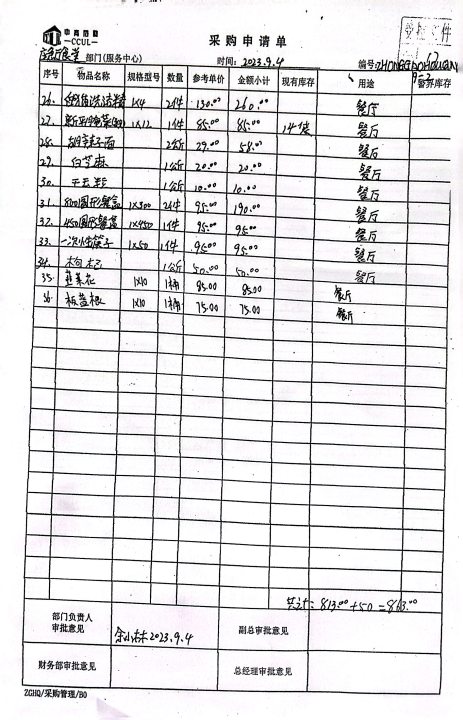 中商百联
CCUL
采购申请单
部门(服务中心) 时间: 2023.9.4 编号:
序号 物品名称 规格型号 数量 参考单价 金额小计 现有库存 用途 警界库存
26. 1×4 2件 130.00 260.00 餐厅
27. 1×12 1件 85.00 85.00 14袋 餐厅
28. 胡辣子面 2公斤 29.00 58.00 餐厅
29. 白芝麻 1公斤 20.00 20.00 餐厅
30. 1公斤 10.00 10.00 餐厅
31. 800圆形餐盒 1×300 2件 95.00 190.00 餐厅
32. 450圆形餐盒 1×450 1件 95.00 95.00 餐厅
33. 一次性筷子 1×50 1件 95.00 95.00 餐厅
34. 枸杞 1公斤 50.00 50.00 餐厅
35. 韭菜花 1×10 1桶 85.00 85.00 餐厅
36. 板蓝根 1×10 1桶 75.00 75.00 餐厅
共计: 813.00+50=863.00
部门负责人
审批意见
余小林 2023.9.4
副总审批意见
财务部审批意见
总经理审批意见
ZGHQ/采购管理/B0